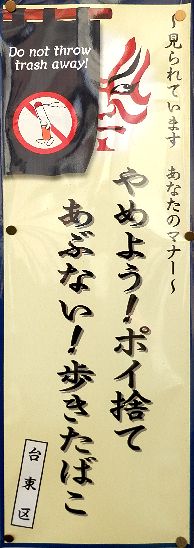 Do not throw
trash away!
〜見られています　あなたのマナー〜
やめよう！ポイ捨て
あぶない！歩きたばこ
台東区